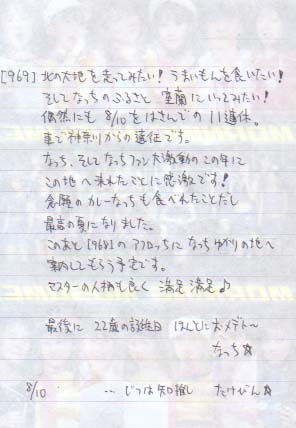 [969] 北の大地を走ってみたい！うまいもんを食いたい！
そしてなっちのふるさと 室蘭にいってみたい！
偶然にも 8/10をはさんでの 11連休。
車で神奈川からの遠征です。
なっち、そしてなっちファン大激動のこの年に
この地へ来れたことに感激です！
念願のカレーなっちも食べれたことだし
最高の夏になりました。
このあと [968]の アフロっちに なっちゆかりの地へ
案内してもらう予定です。
マスターの人柄も良く 満足 満足♪
最後に 22歳の誕生日 ほんとにオメデト〜
なっち☆
8/10 … じつは知推し たけぴん☆